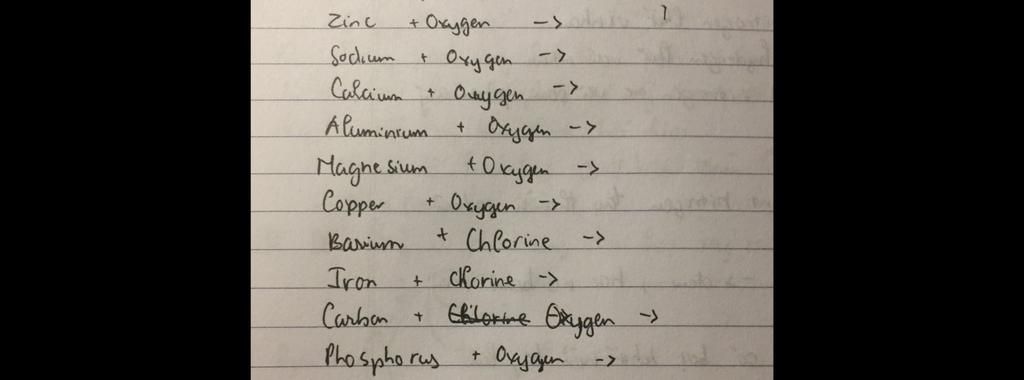 Zinc + Oxygen ->
Sodium + Oxygen ->
Calcium + Oxygen ->
Aluminium + Oxygen ->
Magnesium + Oxygen ->
Copper + Oxygen ->
Barium + Chlorine ->
Iron + Chlorine ->
Carbon + Chlorine Oxygen ->
Phosphorus + Oxygen ->